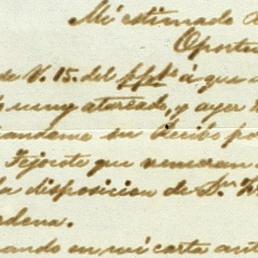 Mi estimado
Oportu
de V. 15. del ppdo á que
muy atareado, y ayer
andome su recibo po
Tejocote que vinieran
la disposicion de Sr.
dena.
ando en mi carta ant